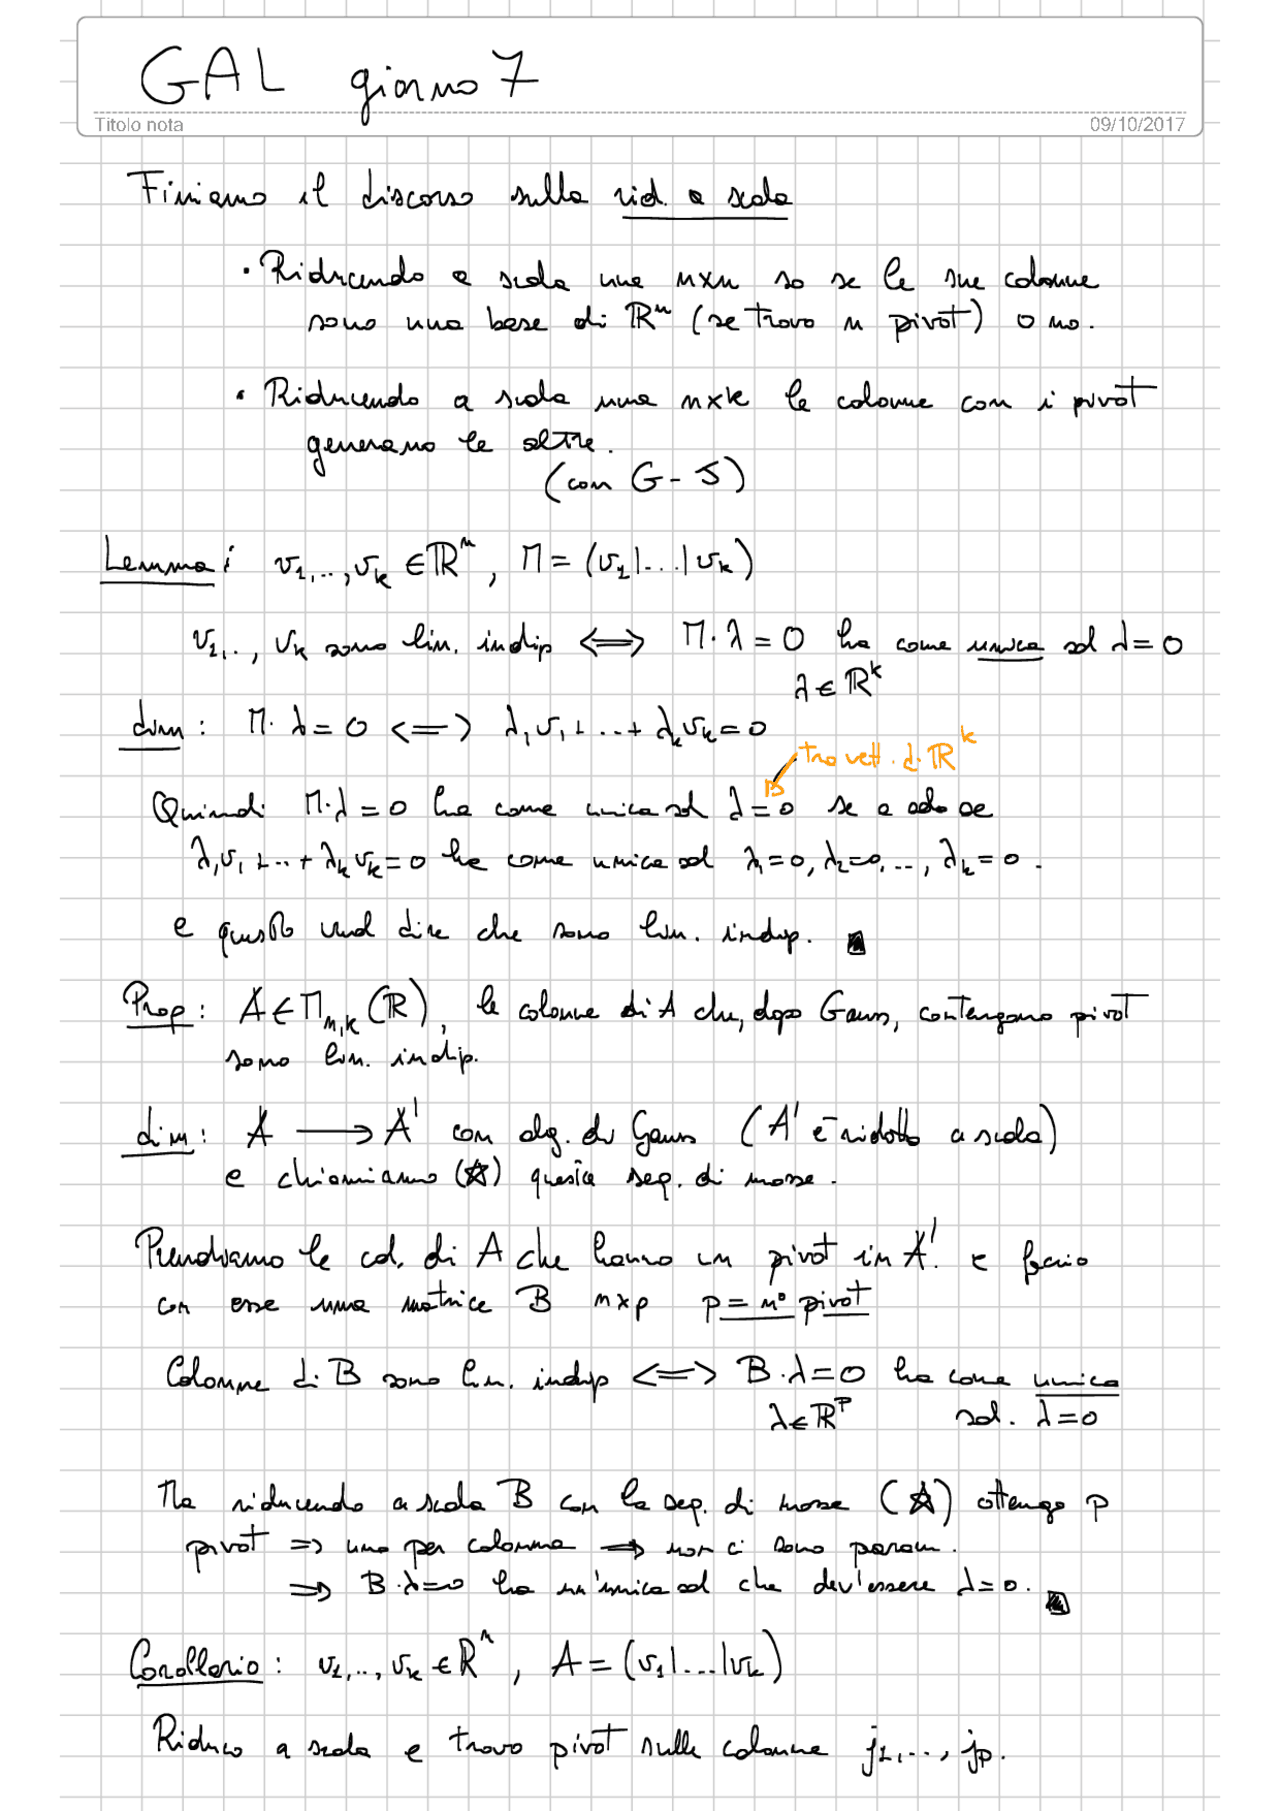 GAL giorno 7
Titolo nota 09/10/2017
Finiamo il discorso sulla rid. a scala
• Riducendo a scala una n×n so se le sue colonne
sono una base di ℝⁿ (se trovo n pivot) o no.
• Riducendo a scala una n×k le colonne con i pivot
generano le altre.
(con G-J)
Lemma: v₁,..,vₖ ∈ ℝⁿ, M = (v₁|...|vₖ)
v₁,.., vₖ sono lin. indip ⟺ M·λ = 0 ha come unica sol λ=0
λ ∈ ℝᵏ
dim: M·λ=0 <=> λ₁v₁+..+λₖvₖ=0
tra vett. di ℝᵏ
Quindi M·λ=0 ha come unica sol λ=0 se e solo se
λ₁v₁+..+λₖvₖ=0 ha come unica sol λ₁=0, λ₂=0,.., λₖ=0.
e questo vuol dire che sono lin. indip. ■
Prop: A ∈ Mₙ,ₖ(ℝ), le colonne di A che, dopo Gauss, contengono pivot
sono lin. indip.
dim: A ⟶ A' con alg. di Gauss (A' è ridotta a scala)
e chiamiamo (☆) questa seq. di mosse.
Prendiamo le col. di A che hanno un pivot in A'. e faccio
con esse una matrice B n×p p = n° pivot
Colonne di B sono lin. indip <=> B·λ=0 ha come unica
λ∈ℝᵖ sol. λ=0
Ma riducendo a scala B con la seq. di mosse (☆) ottengo p
pivot => uno per colonna => non ci sono param.
=> B·λ=0 ha un'unica sol che dev'essere λ=0. ■
Corollario: v₁,..,vₖ ∈ ℝⁿ, A = (v₁|...|vₖ)
Riduco a scala e trovo pivot sulle colonne j₁,..., jₚ.